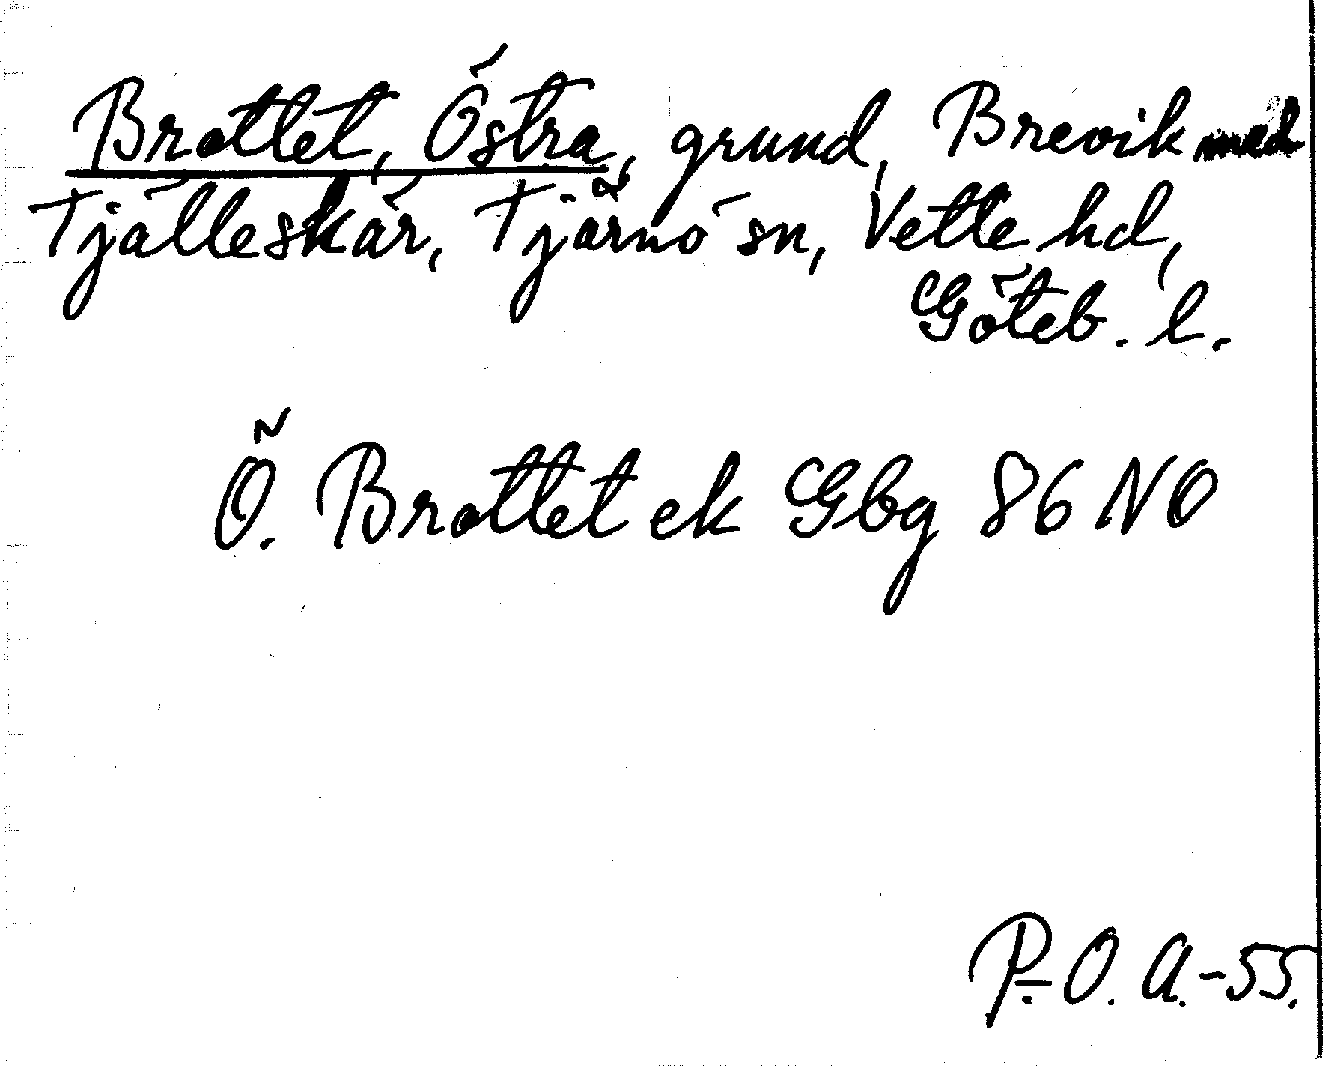 Brottet, Östra, grund, Brevik med
Tjälleskär, Tjärnö sn, Vette hd,
Göteb. l.
Ö. Brottet ek Gbg 86 NO
P.-O. A.-55.